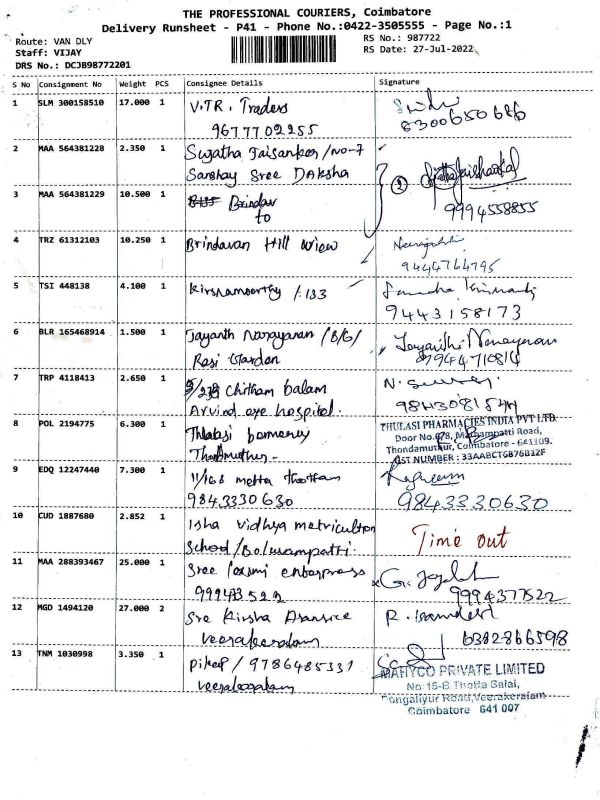 THE PROFESSIONAL COURIERS, Coimbatore
Delivery Runsheet - P41 - Phone No.:0422-3505555 - Page No.:1
Route: VAN DLY
Staff: VIJAY
DRS No.: DCJB98772201
RS No.: 987722
RS Date: 27-Jul-2022
S No Consignment No Weight PCS Consignee Details Signature
1 SLM 300158510 17.000 1 V.T.R. Traders
9677702255 8300650686
2 MAA 564381228 2.350 1 Sujatha Jaisankar/No-7
Sanskay Sree DAksha
3 MAA 564381229 10.500 1 Brindav 2
to 9994558855
4 TRZ 61312103 10.250 1 Brindavan Hill view
9444764795
5 TSI 448138 4.100 1 Kirshamoorthy /:133
9443158173
6 BLR 165468914 1.500 1 Jayanth Narayanan /8/G/ Jayanthi Narayanan
Rasi Garden 87944710814
7 TRP 4118413 2.650 1 Chitham balam
Arvind eye hospital.
8 POL 2194775 6.300 1 Thulasi
THULASI PHARMACIES INDIA PVT LTD.
Door No.678, Madhampatti Road,
Thondamuthur, Coimbatore - 641109.
GST NUMBER : 33AABCT6876B2ZF
9 EDQ 12247440 7.300 1 11/168 metha thottam
9843330630 9843330630
10 CUD 1887680 2.852 1 Isha Vidhya matricultion Time out
School/Bolusampatti.
11 MAA 288393467 25.000 1 Sree laxmi enterpress
9994377522
12 MGD 1494120 27.000 2 Sre Kirsha
Veerakeralam 6382866598
13 TNM 1030998 3.350 1 Dileep / 9786485331
MAHYCO PRIVATE LIMITED
No:15-B Thotta Salai,
Pongaliyur Road,Veerakeralam
Coimbatore 641 007